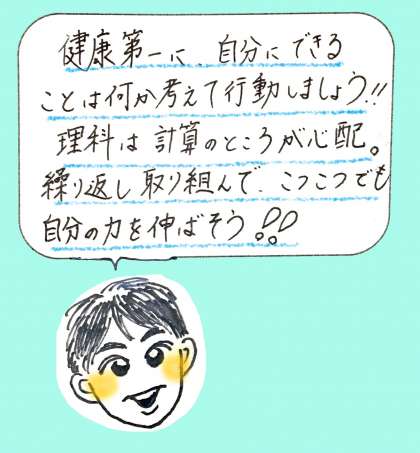 健康第一に、自分にできる
ことは何か考えて行動しましょう!!
理科は計算のところが心配。
繰り返し取り組んで、こつこつでも
自分の力を伸ばそう!!